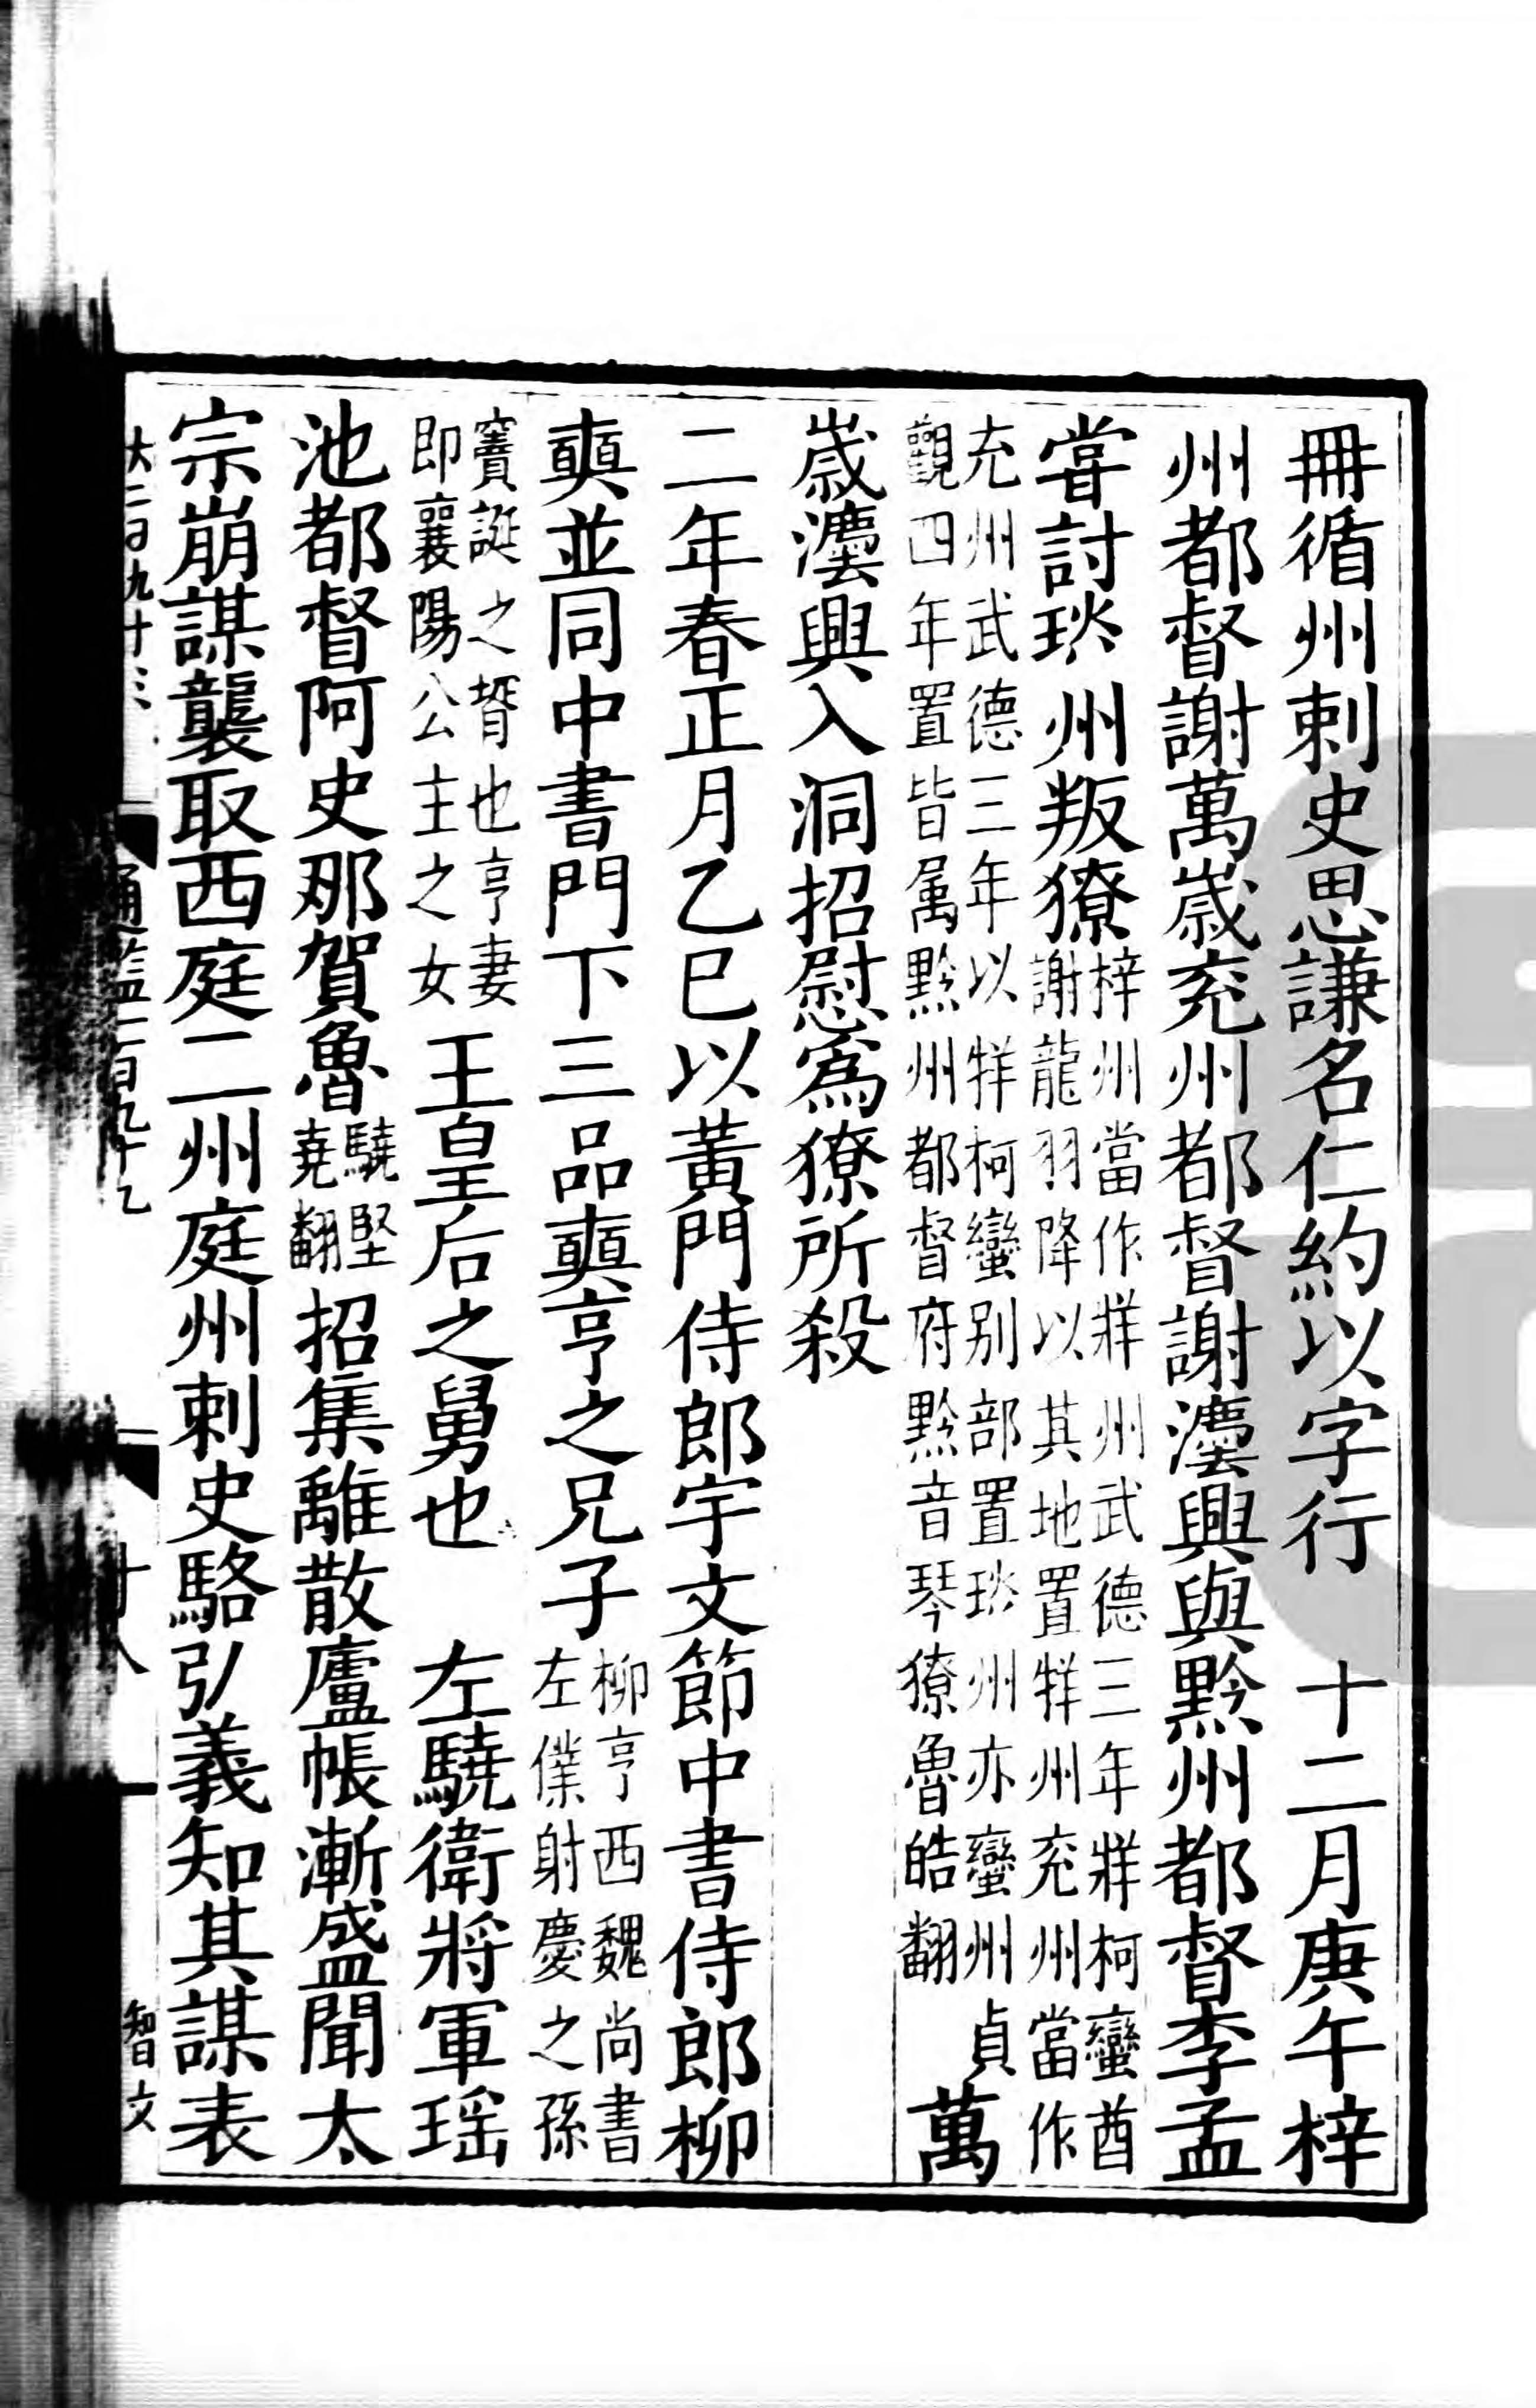 冊循州刺史思謙名仁約以字行　十二月庚午梓
州都督謝萬歳兖州都督謝灋興與黔州都督李孟
嘗討琰州叛獠梓州當作牂州武德三年牂柯蠻酋謝龍羽降以其地置牂州兖州當作
充州武德三年以牂柯蠻别部置琰州亦蠻州貞觀四年置皆属黔州都督府黔音琴獠魯皓翻萬
歳灋興入洞招慰爲獠所殺
二年春正月乙巳以黃門侍郎宇文節中書侍郎柳
奭並同中書門下三品奭亨之兄子柳亨西魏尚書左僕射慶之孫
竇誕之壻也亨妻即襄陽公主之女王皇后之舅也　左驍衛將軍瑶
池都督阿史那賀魯驍堅堯翻招集離散廬帳漸盛聞太
宗崩謀襲取西庭二州庭州刺史駱弘義知其謀表
通鑑一百九十九
十八
智文